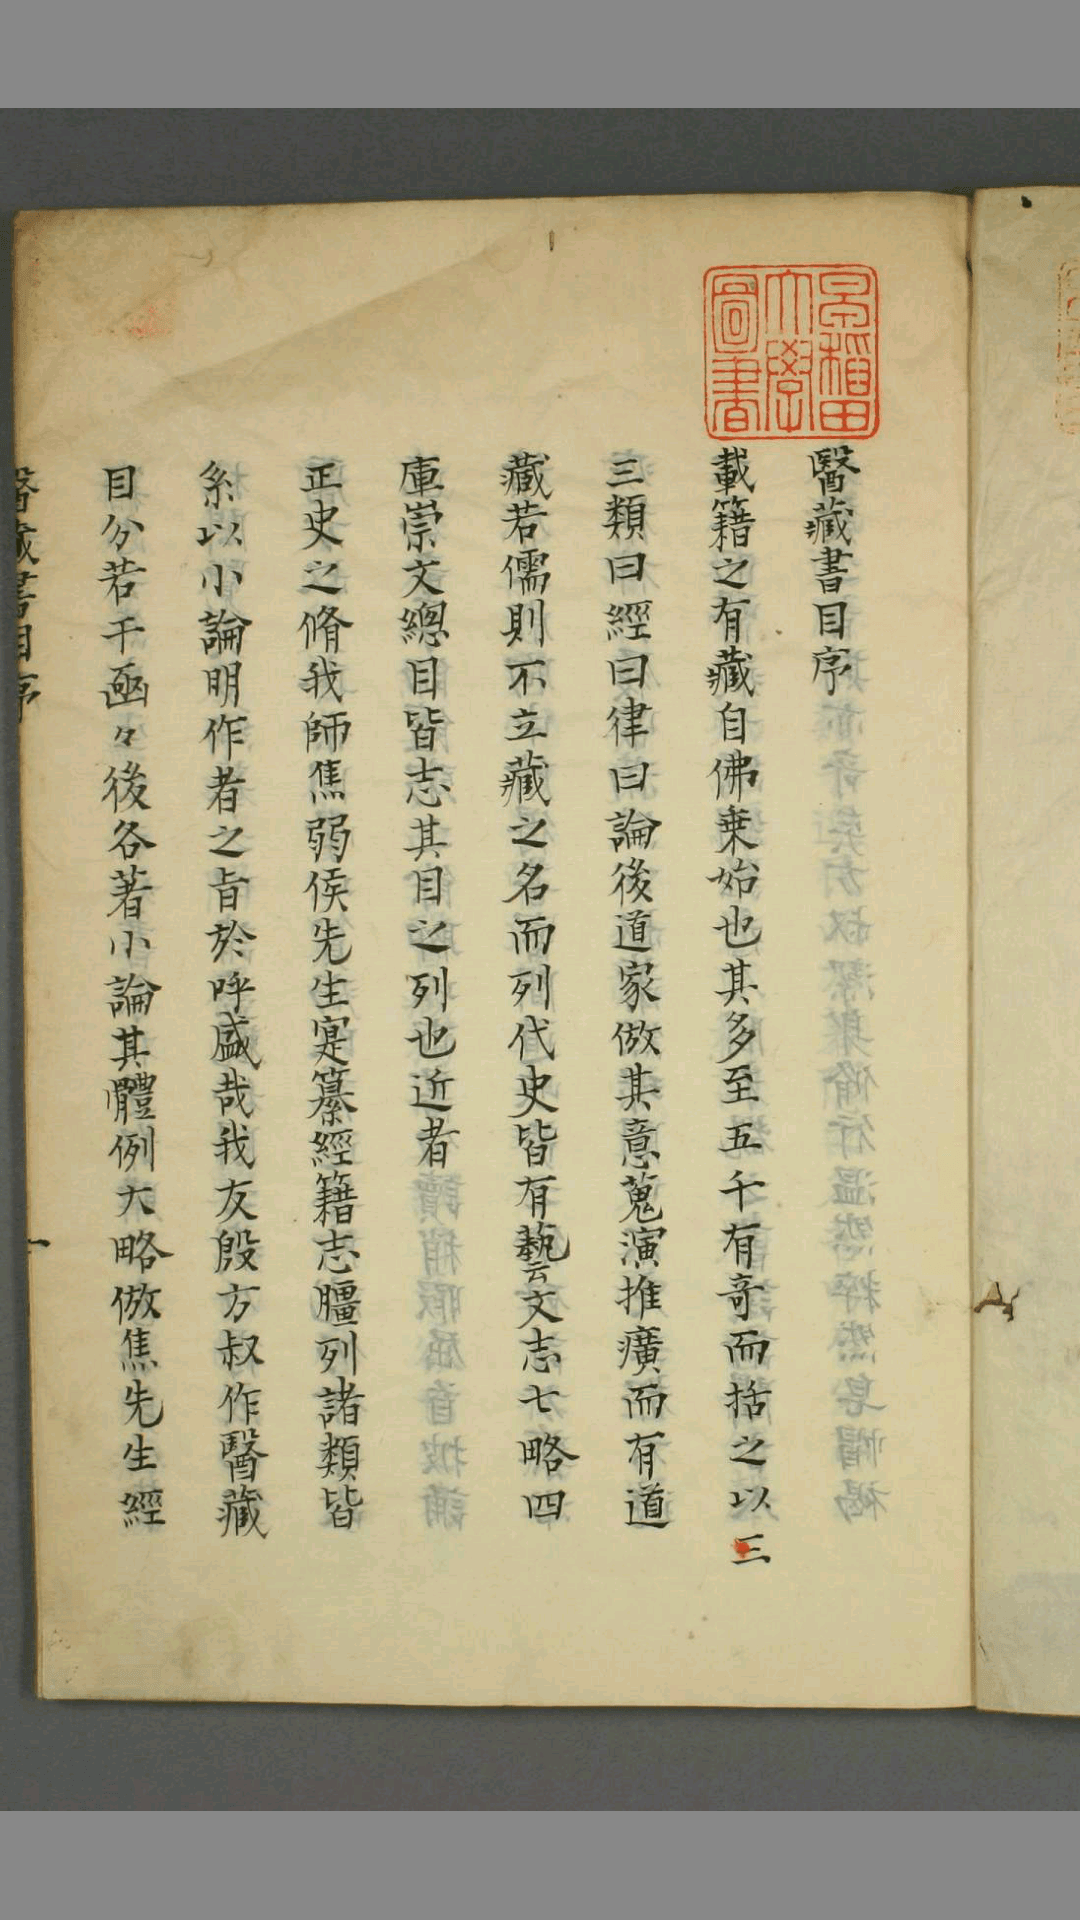 早稲田大學圖書
醫藏書目序
載籍之有藏自佛乗始也其多至五千有奇而括之以三
三類曰經曰律曰論後道家倣其意蒐演推廣而有道
藏若儒則不立藏之名而列代史皆有藝文志七略四
庫崇文總目皆志其目之列也近者
正史之脩我師焦弱侯先生寔纂經籍志臚列諸類皆
系以小論明作者之旨於呼盛哉我友殷方叔作醫藏
目分若干凾々後各著小論其體例大略倣焦先生經
醫藏書目序 一